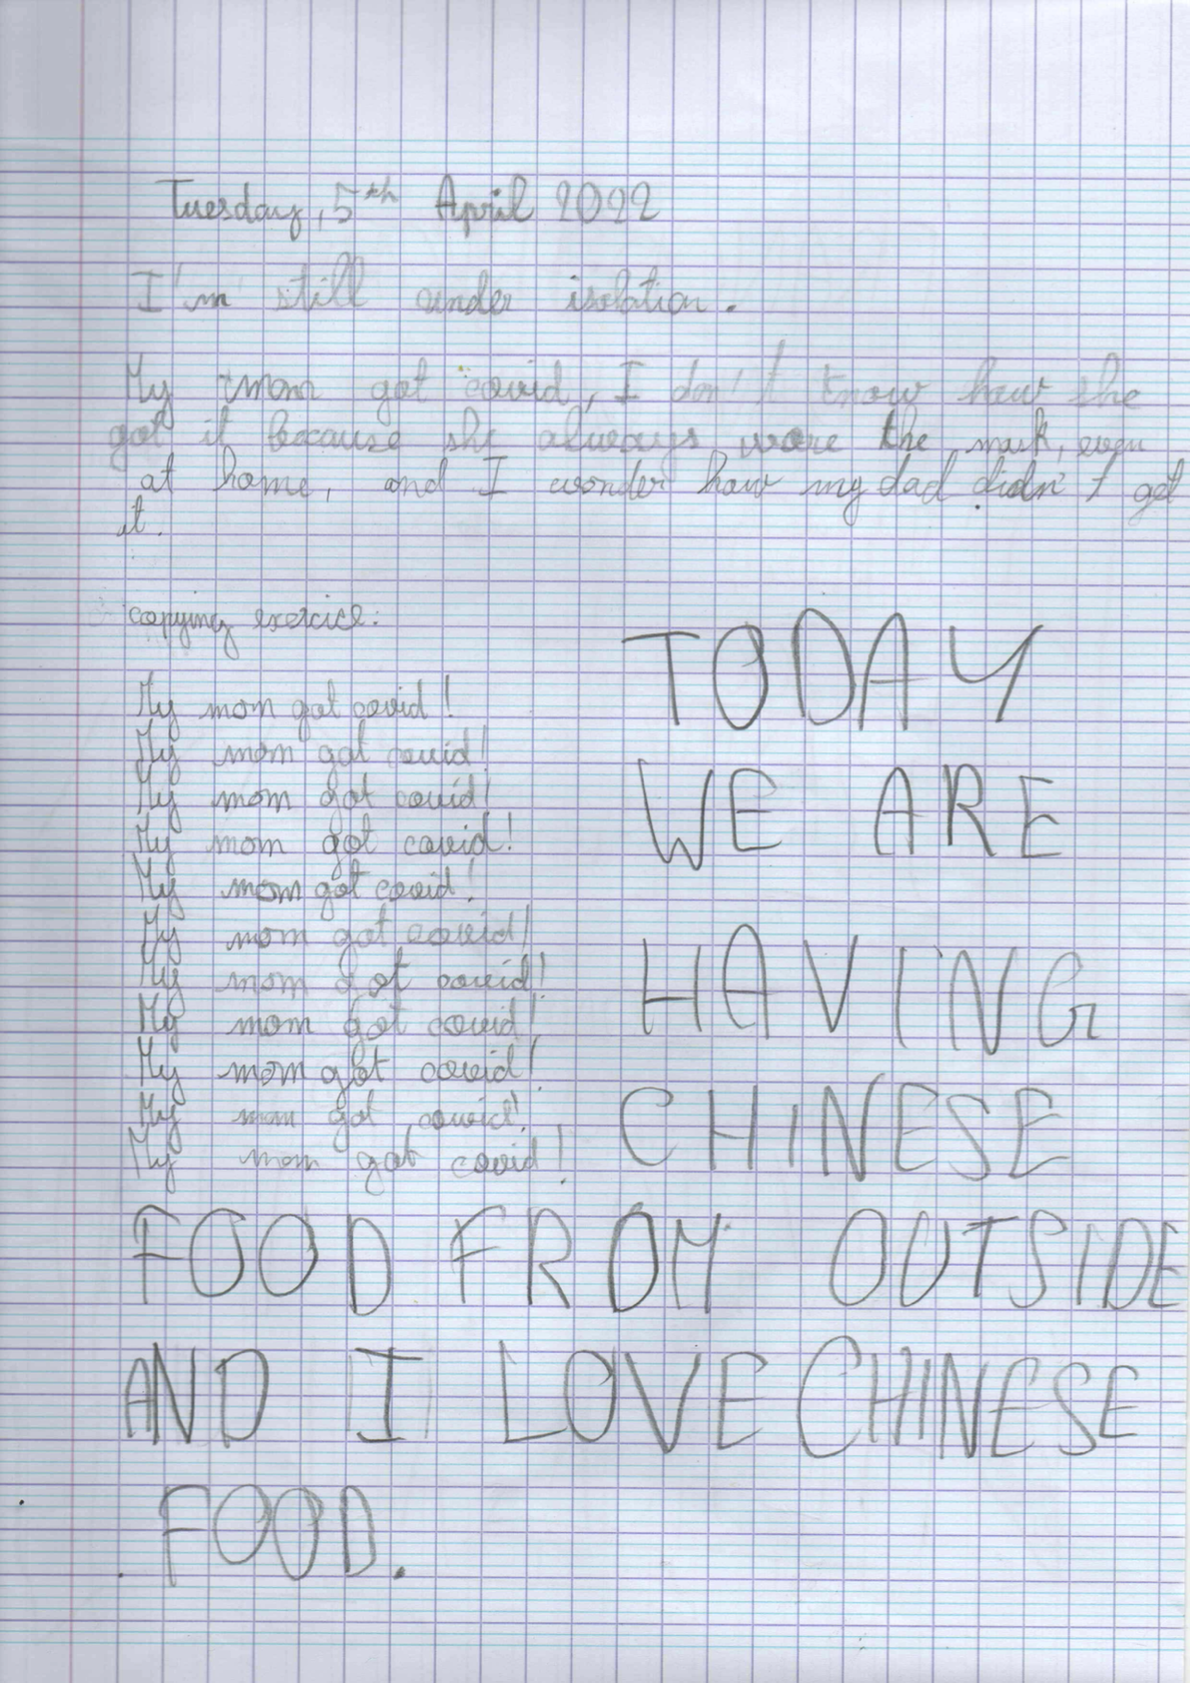 Tuesday, 5th April 2022
I'm still under isolation.
My mom got covid, I don't know how she
got it because she always wore the mask, even
at home, and I wonder how my dad didn't get
it.
copying exercice:
My mom got covid!
My mom got covid!
My mom got covid!
My mom got covid!
My mom got covid!
My mom got covid!
My mom got covid!
My mom got covid!
My mom got covid!
My mom got covid!
My mom got covid!
TODAY
WE ARE
HAVING
CHINESE
FOOD FROM OUTSIDE
AND I LOVE CHINESE
FOOD.